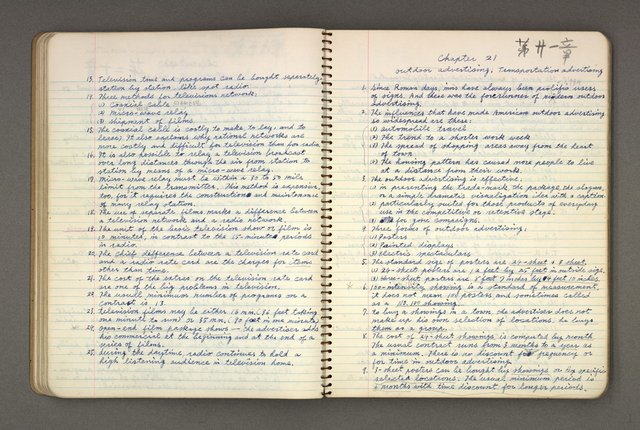 13. Television time and programs can be bought separately,
station by station, like spot radio.
14. Three methods for televisions network:
1) Coaxial cable
2) Micro-wave relay
3) Shipment of films
15. The coaxial cable is costly to make to lay, and to
lease. It also explains why national networks are
more costly and difficult for television than for radio.
16. It is also possible to relay a television broadcast
over long distances through the air from station to
station by means of a micro-wave relay.
17. Micro-wave relay must be within a 30 to 50 mile
limit from the transmitter. This method is expensive,
too, for it requires the construction and maintenance
of many relay station.
18. The use of separate films marks a difference between
a television network and a radio network.
19. The unit of the basic television show or film is
10 minutes, in contrast to the 15-minute periods
in radio.
20. The chief difference between a television rate card
and a radio rate card are the charges for items
other than time.
21. The cost of the extras on the television rate card
are one of the big problems in television.
22. The usual minimum number of programs on a
contract is 13.
23. Television films may be either 16 mm. (36 feet taking
one minute to run) or 35 mm. (90 feet in one minute)
24. Open-end film package shows — the advertiser adds
his commercial at the beginning and at the end of a
series of films.
25. During the daytime, radio continues to hold a
high listening audience in television home.
第廿一章
Chapter 21
Outdoor advertising, Transportation advertising
1. Since Roman days, men have always been prolific users
of signs, and these were the forerunner of modern outdoor
advertising.
2. The influences that have made American outdoor advertising
so widespread are these:
1) automobile travel
2) The trend to a shorter work week
3) The spread of shopping areas away from the heart
of town
4) The housing pattern has caused more people to live
at a distance from their work.
3. The outdoor advertising is effective:
1) in presenting the trade-mark, the package, the slogan,
or a simple dramatic visualization idea with a caption
2) particularly suited for those products of everyday
use in the competitive or retentive stage.
3) for gone campaigns.
4. Three forms of outdoor advertising:
1) Posters
2) Painted displays
3) Electric spectaculars
5. The standard sizes of posters are 24-sheet & 3 sheet.
1) 24-sheet posters are 12 feet by 25 feet in outside size.
2) three-sheet posters are 8 feet 7 inches by 4 feet 10 inches
6. 100-intensity showing is a standard of measurement.
It does not mean 100 posters and sometimes called
as a 100 showing.
7. To buy a showings in a town, the advertiser does not
make up his own selection of locations. He buys
them as a group.
8. The cost of 24-sheet showings is computed by month.
The usual contract runs from 3 months to a year as
a minimum. There is no discount for frequency or
for time in outdoor advertising.
9. 3-sheet posters can be bought by showings or by specific
selected locations. The usual minimum period is
6 months with time discount for longer periods.